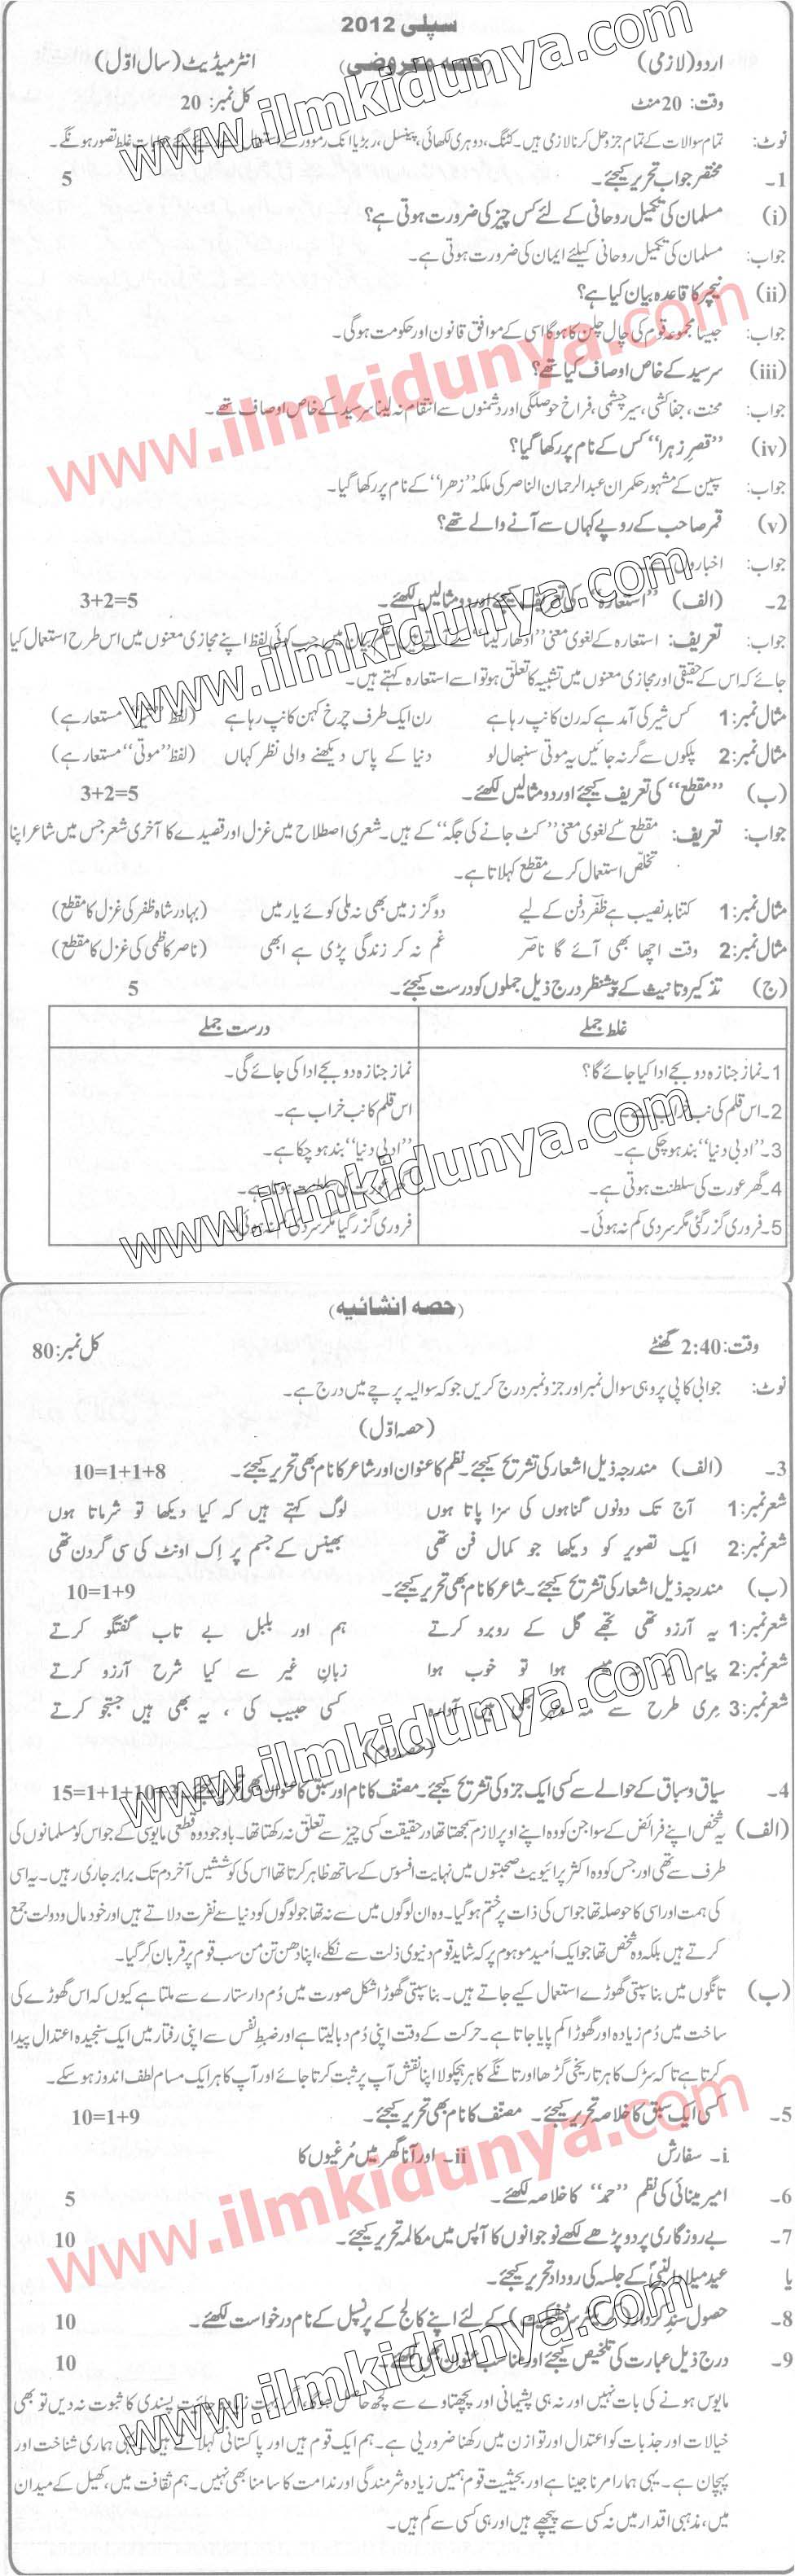 سپلی 2012
اردو (لازمی) (حصہ معروضی) انٹرمیڈیٹ (سال اوّل)
وقت: 20 منٹ کل نمبر: 20
نوٹ: تمام سوالات کے تمام جزو حل کرنا لازمی ہیں۔ کٹنگ، دوہری لکھائی، پینسل، ربڑ یا انک رموور کے استعمال جوابات غلط تصور ہونگے۔
1۔ مختصر جواب تحریر کیجئے۔ 5
(i) مسلمان کی تکمیل روحانی کے لئے کس چیز کی ضرورت ہوتی ہے؟
جواب: مسلمان کی تکمیل روحانی کیلئے ایمان کی ضرورت ہوتی ہے۔
(ii) نیچر کا قاعدہ بیان کیا ہے؟
جواب: جیسا مجموعہ قوم کی چال چلن کا ہو گا اسی کے موافق قانون اور حکومت ہو گی۔
(iii) سر سید کے خاص اوصاف کیا تھے؟
جواب: محنت، جفاکشی، سیر چشمی، فراخ حوصلگی اور دشمنوں سے انتقام نہ لینا سرسید کے خاص اوصاف تھے۔
(iv) "قصرِ زہرا" کس کے نام پر رکھا گیا؟
جواب: سپین کے مشہور حکمران عبدالرحمان الناصر کی ملکہ "زھرا" کے نام پر رکھا گیا۔
(v) قمر صاحب کے روپے کہاں سے آنے والے تھے؟
جواب: اخباروں سے۔
2۔ (الف) "استعارہ" کی تعریف کیجئے اور دو مثالیں لکھئے۔ 3+2=5
جواب: تعریف: استعارہ کے لغوی معنی "ادھار لینا" کے ہیں۔ علم بیان میں جب کوئی لفظ اپنے مجازی معنوں میں اس طرح استعمال کیا
جائے کہ اس کے حقیقی اور مجازی معنوں میں تشبیہ کا تعلق ہو تو اسے استعارہ کہتے ہیں۔
مثال نمبر: 1 کس شیر کی آمد ہے کہ رن کانپ رہا ہے رن ایک طرف چرخ کہن کانپ رہا ہے (لفظ "شیر" مستعار ہے)
مثال نمبر: 2 پلکوں سے گر نہ جائیں یہ موتی سنبھال لو دنیا کے پاس دیکھنے والی نظر کہاں (لفظ "موتی" مستعار ہے)
(ب) "مقطع" کی تعریف کیجئے اور دو مثالیں لکھئے۔ 3+2=5
جواب: تعریف: مقطع کے لغوی معنی "کٹ جانے کی جگہ" کے ہیں۔ شعری اصطلاح میں غزل اور قصیدے کا آخری شعر جس میں شاعر اپنا
تخلّص استعمال کرے مقطع کہلاتا ہے۔
مثال نمبر: 1 کتنا بدنصیب ہے ظفرؔ دفن کے لیے دو گز زمیں بھی نہ ملی کوئے یار میں (بہادر شاہ ظفر کی غزل کا مقطع)
مثال نمبر: 2 وقت اچھا بھی آئے گا ناصرؔ غم نہ کر زندگی پڑی ہے ابھی (ناصر کاظمی کی غزل کا مقطع)
(ج) تذکیر و تانیث کے پیشِنظر درج ذیل جملوں کو درست کیجئے۔ 5
غلط جملے درست جملے
1۔ نماز جنازہ دو بجے ادا کیا جائے گا؟ نماز جنازہ دو بجے ادا کی جائے گی۔
2۔ اس قلم کی نب خراب ہے۔ اس قلم کا نب خراب ہے۔
3۔ "ادبی دنیا" بند ہو چکی ہے۔ "ادبی دنیا" بند ہو چکا ہے۔
4۔ گھر عورت کی سلطنت ہوتی ہے۔ گھر عورت کی سلطنت ہوتا ہے۔
5۔ فروری گزر گئی مگر سردی کم نہ ہوئی۔ فروری گزر گیا مگر سردی کم نہ ہوئی۔
(حصہ انشائیہ)
وقت: 2:40 گھنٹے کل نمبر: 80
نوٹ: جوابی کاپی پر وہی سوال نمبر اور جزو نمبر درج کریں جو کہ سوالیہ پرچے میں درج ہے۔
(حصہ اوّل)
3۔ (الف) مندرجہ ذیل اشعار کی تشریح کیجئے۔ نظم کا عنوان اور شاعر کا نام بھی تحریر کیجئے۔ 10=1+1+8
شعر نمبر: 1 آج تک دونوں گناہوں کی سزا پاتا ہوں لوگ کہتے ہیں کہ کیا دیکھا تو شرماتا ہوں
شعر نمبر: 2 ایک تصویر کو دیکھا جو کمال فن تھی بھینس کے جسم پر اِک اونٹ کی سی گردن تھی
(ب) مندرجہ ذیل اشعار کی تشریح کیجئے۔ شاعر کا نام بھی تحریر کیجئے۔ 10=1+9
شعر نمبر: 1 یہ آرزو تھی تجھے گل کے روبرو کرتے ہم اور بلبل بے تاب گفتگو کرتے
شعر نمبر: 2 پیام بر نہ میسر ہوا تو خوب ہوا زبانِ غیر سے کیا شرح آرزو کرتے
شعر نمبر: 3 مِری طرح سے مہ و مہر بھی ہیں آوارہ کسی حبیب کی، یہ بھی ہیں جستجو کرتے
(حصہ دوم)
4۔ سیاق و سباق کے حوالے سے کسی ایک جزو کی تشریح کیجئے۔ مصنّف کا نام اور سبق کا عنوان بھی تحریر کیجئے۔ 15=1+1+10+3
(الف) یہ شخص اپنے فرائض کے سوا جن کو وہ اپنے اوپر لازم سمجھتا تھا درحقیقت کسی چیز سے تعلق نہ رکھتا تھا۔ باوجود وہ قطعی مایوسی کے جو اس کو مسلمانوں کی
طرف سے تھی اور جس کو وہ اکثر پرائیویٹ صحبتوں میں نہایت افسوس کے ساتھ ظاہر کرتا تھا اس کی کوششیں آخر دم تک برابر جاری رہیں۔ یہ اسی
کی ہمت اور اسی کا حوصلہ تھا جو اس کی ذات پر ختم ہو گیا۔ وہ ان لوگوں میں سے نہ تھا جو لوگوں کو دنیا سے نفرت دلاتے ہیں اور خود مال و دولت جمع
کرتے ہیں بلکہ وہ شخص تھا جو ایک اُمید موہوم پر کہ شاید قوم دنیوی ذلت سے نکلے، اپنا دھن تن من سب قوم پر قربان کر گیا۔
(ب) تانگوں میں بناسپتی گھوڑے استعمال کیے جاتے ہیں۔ بناسپتی گھوڑا شکل صورت میں دُم دار ستارے سے ملتا ہے کیوں کہ اس گھوڑے کی
ساخت میں دُم زیادہ اور گھوڑا کم پایا جاتا ہے۔ حرکت کے وقت اپنی دُم دبا لیتا ہے اور ضبطِ نفس سے اپنی رفتار میں ایک سنجیدہ اعتدال پیدا
کرتا ہے تاکہ سڑک کا ہر تاریخی گڑھا اور تانگے کا ہر ہچکولا اپنا نقش آپ پر ثبت کرتا جائے اور آپ کا ہر ایک مسام لطف اندوز ہو سکے۔
5۔ کسی ایک سبق کا خلاصہ تحریر کیجئے۔ مصنف کا نام بھی تحریر کیجئے۔ 10=1+9
i۔ سفارش ii۔ اور آنا گھر میں مُرغیوں کا
6۔ امیر مینائی کی نظم "حمد" کا خلاصہ لکھئے۔ 5
7۔ بے روزگاری پر دو پڑھے لکھے نوجوانوں کا آپس میں مکالمہ تحریر کیجئے۔ 10
یا عید میلاد النبیؐ کے جلسہ کی روداد تحریر کیجئے۔
8۔ حصول سندِ کردار (کریکٹر سرٹیفکیٹ) کے لئے اپنے کالج کے پرنسپل کے نام درخواست لکھئے۔ 10
9۔ درج ذیل عبارت کی تلخیص کیجئے اور مناسب عنوان بھی لکھئے۔ 10
مایوس ہونے کی بات نہیں اور نہ ہی پشیمانی اور پچھتاوے سے کچھ حاصل ہو گا، اگر بہت زیادہ جذبات پسندی کا ثبوت نہ دیں تو بھی
خیالات اور جذبات کو اعتدال اور توازن میں رکھنا ضروری ہے۔ ہم ایک قوم ہیں اور پاکستانی کہلاتے ہیں۔ یہی ہماری شناخت اور
پہچان ہے۔ یہی ہمارا مرنا جینا ہے اور بحیثیت قوم ہمیں زیادہ شرمندگی اور ندامت کا سامنا بھی نہیں۔ ہم ثقافت میں، کھیل کے میدان
میں، مذہبی اقدار میں نہ کسی سے پیچھے ہیں اور ہی کسی سے کم ہیں۔
www.ilmkidunya.com
www.ilmkidunya.com
www.ilmkidunya.com
www.ilmkidunya.com
www.ilmkidunya.com
www.ilmkidunya.com
www.ilmkidunya.com